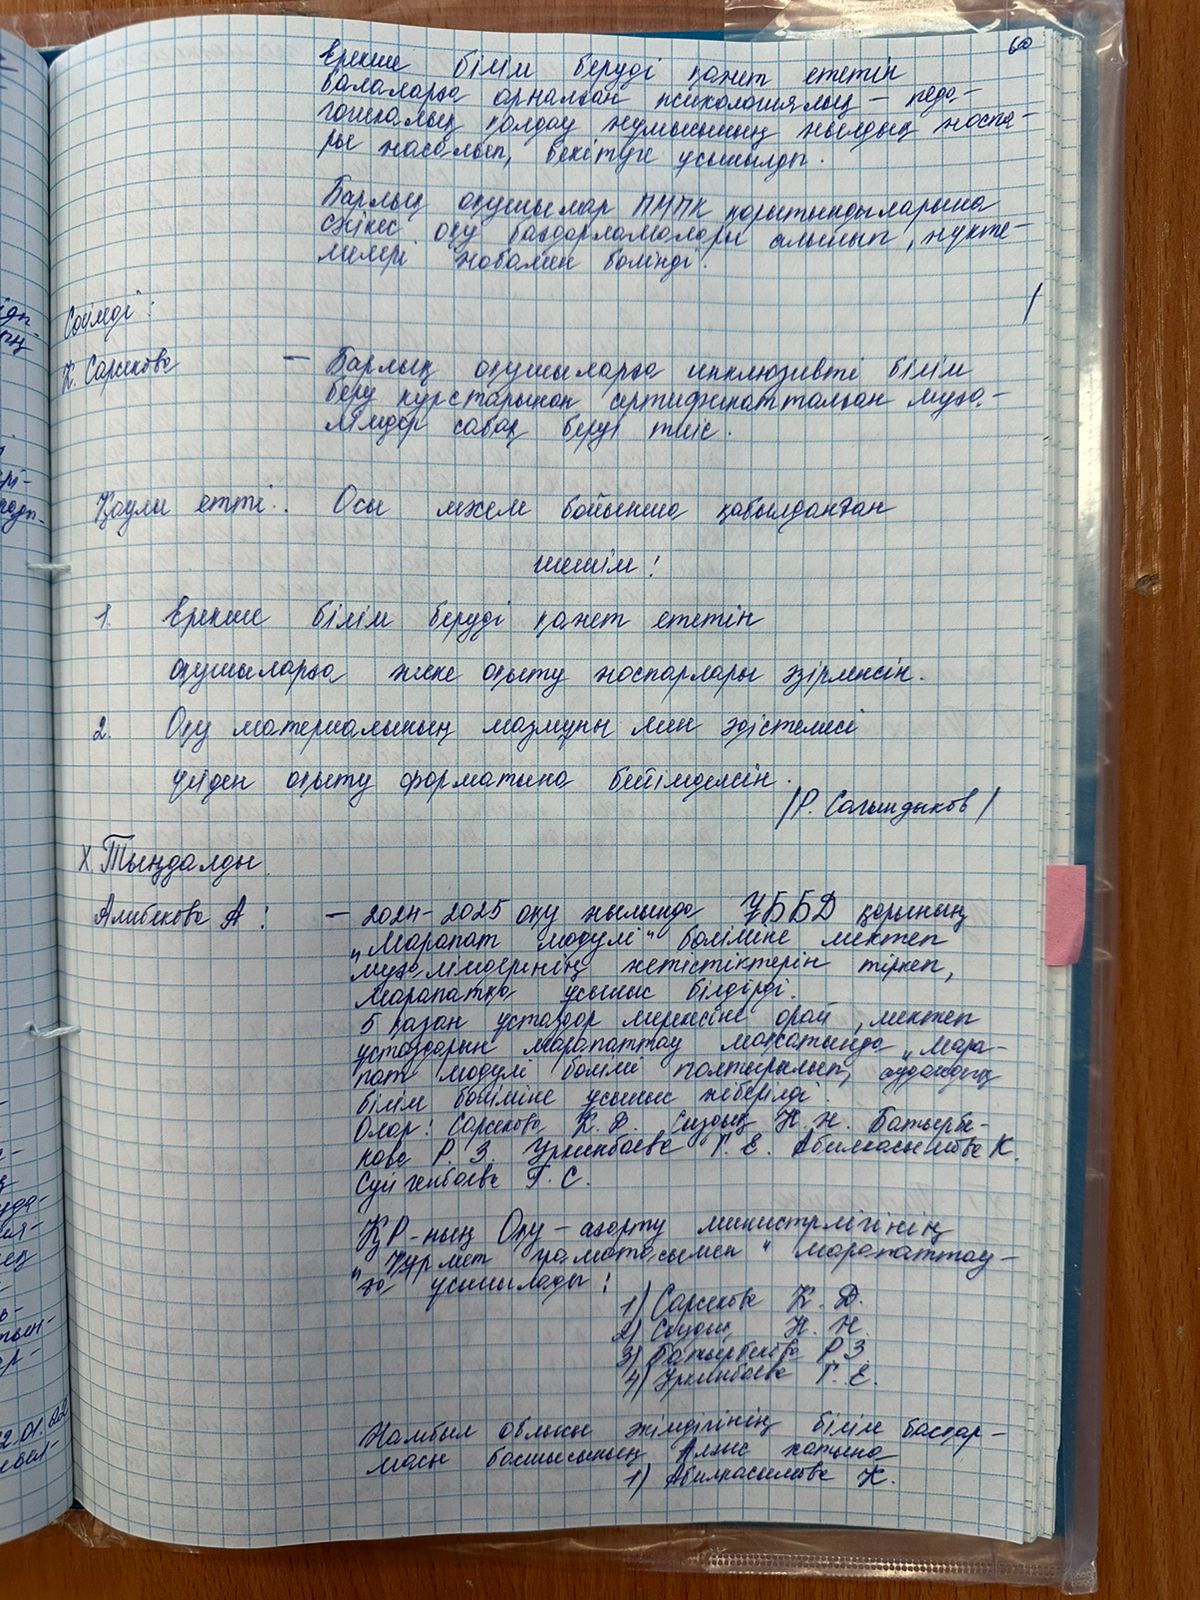 60
Ерекше білім беруді қажет ететін
балаларға арналған психологиялық – педа-
гогикалық қолдау жұмысының жылдық жоспа-
ры жасалып, бекітуге ұсынылды.
Барлық оқушылар ПМПК қорытындыларына
сәйкес оқу бағдарламалары алынып, нүкте-
лелері жобамен бөлінді.
Сөйледі:
К. Сарсекова – Барлық оқушыларға инклюзивті білім
беру курстарынан сертификатталған мұға-
лімдер сабақ беруі тиіс.
Қаулы етті: Осы мәселе бойынша қабылданған
шешім:
1. Ерекше білім беруді қажет ететін
оқушыларға жеке оқыту жоспарлары әзірленсін.
2. Оқу материалының мазмұны мен әдістемесі
үйден оқыту форматына бейімделсін.
/Р. Сагындыков/
X. Тыңдалды
Алибекова А: – 2024-2025 оқу жылында ҰББД қорының
„Марапат модулі" бөліміне мектеп
мұғалімдерінің жетістіктерін тіркеп,
марапатқа ұсыныс білдірді.
5 қазан ұстаздар мерекесіне орай, мектеп
ұстаздарын марапаттау мақсатында „Мара-
пат модулі бөлімі толтырылып, аудандық
білім бөліміне ұсыныс жіберілді.
Олар: Сарсекова К. Д. Сыздық Н. Н. Батырбе-
кова Р. З. Уркинбаева Г. Е. Абилкасымова К.
Суйгенбаева Г. С.
ҚР-ның Оқу-ағарту министрлігінің
„Құрмет грамотасымен" марапаттау-
ға ұсынылады:
1) Сарсекова К. Д.
2) Сыздық Н. Н.
3) Батырбекова Р З
4) Уркинбаева Г. Е.
Жамбыл облысы әкімдігінің білім басқар-
масы басшысының Алғыс хатына
1) Абилкасымова К.